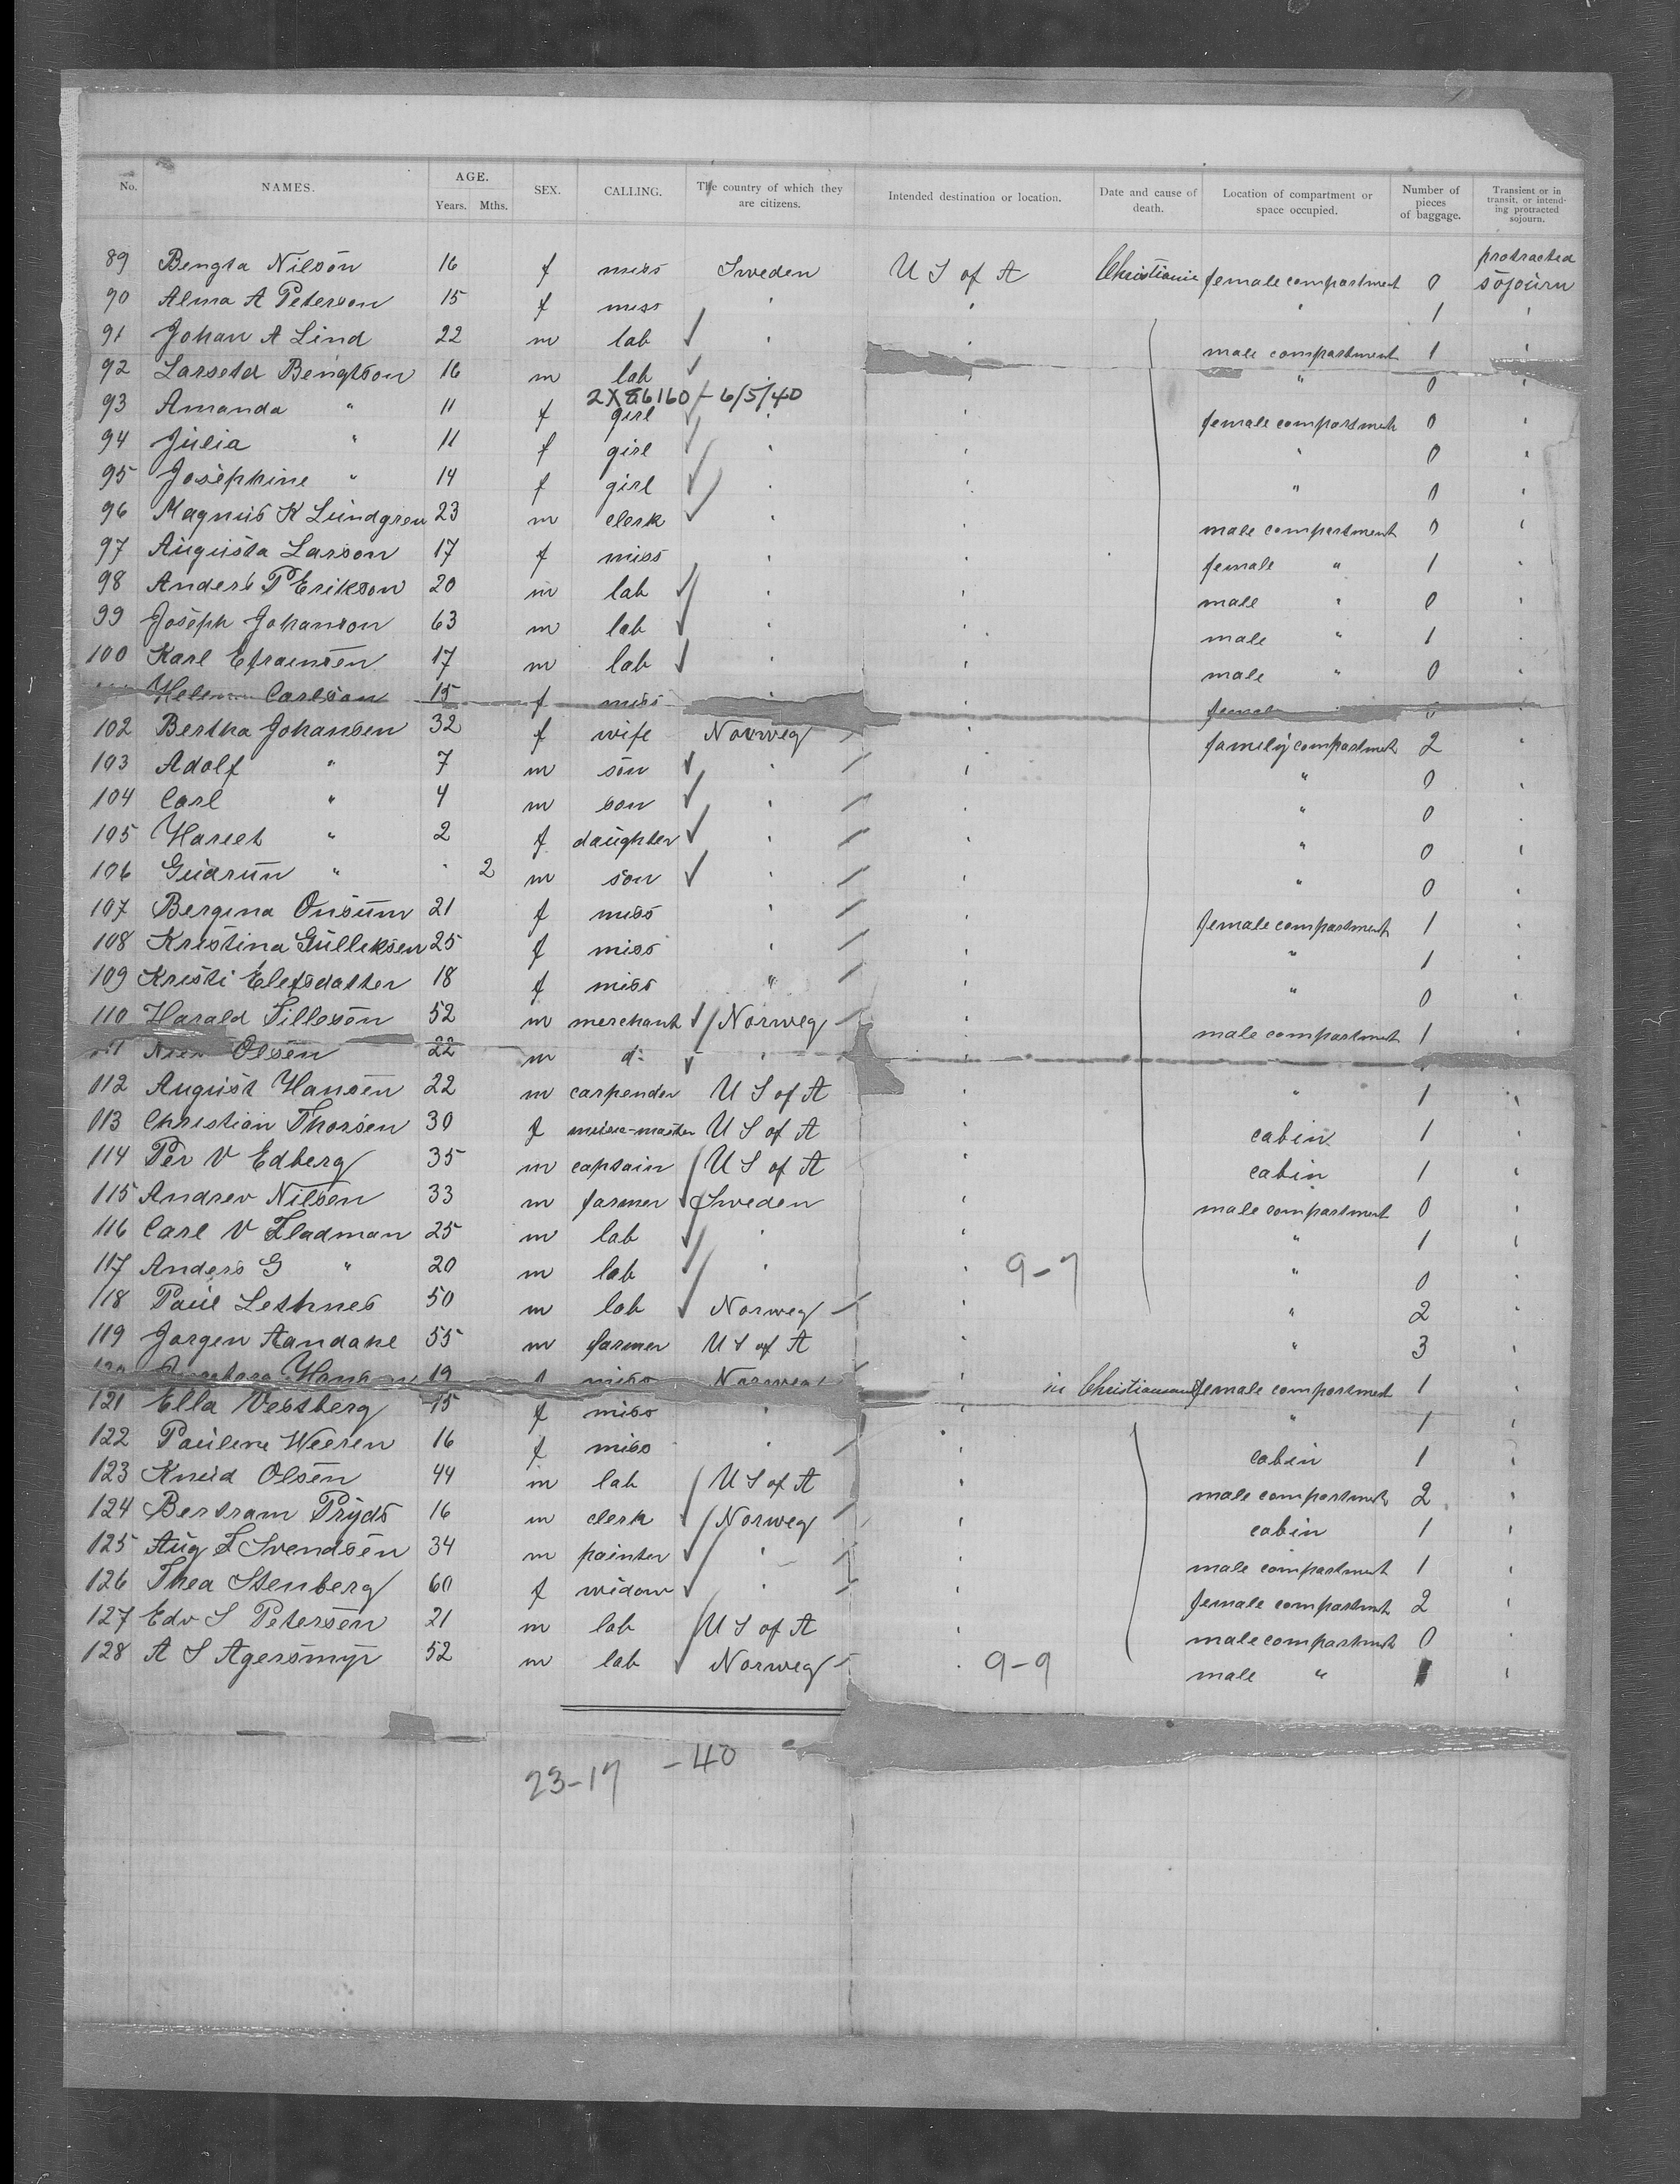 No. NAMES. AGE. Years. Mths. SEX. CALLING. The country of which they are citizens. Intended destination or location. Date and cause of death. Location of compartment or space occupied. Number of pieces of baggage. Transient or in transit, or intending protracted sojourn.
89 Bengta Nilson 16 f miss Sweden U S of A Christiania female compartment 0 protracted sojourn
90 Alma A Peterson 15 f miss " " " 1 "
91 Johan A Lind 22 m lab " " male compartment 1 "
92 Bengtson 16 m lab " " " 0 "
2X 66160 - 6/5/40
93 Amanda " 11 f girl " " female compartment 0 "
94 Julia " 11 f girl " " " 0 "
95 Josephine " 14 f girl " " " 0 "
96 Magnus K Lundgren 23 m clerk " " male compartment 0 "
97 Augusta Larson 17 f miss " " female " 1 "
98 Anders P Erikson 20 m lab " " male " 0 "
99 Joseph Johanson 63 m lab " " male " 1 "
100 Karl Efraimsen 17 m lab " " male " 0 "
Carlson 15 f miss " " female
102 Bertha Johansen 32 f wife Norweg " family compartment 2 "
103 Adolf " 7 m son " " " 0 "
104 Carl " 4 m son " " " 0 "
105 Hareet " 2 f daughter " " " 0 "
106 Gudrun " " 2 m son " " " 0 "
107 Bergina Onsum 21 f miss " " female compartment 1 "
108 Kristina Gulleksen 25 f miss " " " 1 "
109 Kristi Elefsdatter 18 f miss " " " 0 "
110 Harald Tillesen 52 m merchant Norweg " male compartment 1
Olsen 22 m d: " "
112 August Hansen 22 m carpender U S of A " " 1 "
113 Christian Thorsen 30 f U S of A " cabin 1 "
114 Per V Edberg 35 m captain U S of A " cabin 1 "
115 Andrew Nilsen 33 m farmer Sweden " male compartment 0 "
116 Carl V Fladman 25 m lab " " " 1 "
117 Anders G " 20 m lab " " 9-7 " 0 "
118 Paul Lethnes 50 m lab Norweg " " 2 "
119 Jorgen Aandahl 55 m farmer U S of A " " 3 "
19 miss Norweg " in Christiansand female compartment 1 "
121 Ella Vestberg 15 f miss " " " 1 "
122 Pauline Weeren 16 f miss " " cabin 1 "
123 Knud Olsen 44 m lab U S of A " male compartment 2 "
124 Bertram Pryds 16 m clerk Norweg " cabin 1 "
125 Aug F Svendsen 34 m painter " " male compartment 1 "
126 Thea Stenberg 60 f widow " " female compartment 2 "
127 Edv S Petersen 21 m lab U S of A " male compartment 0 "
128 A S Agersmyr 52 m lab Norweg " 9-9 male " 1 "
23-17 -40